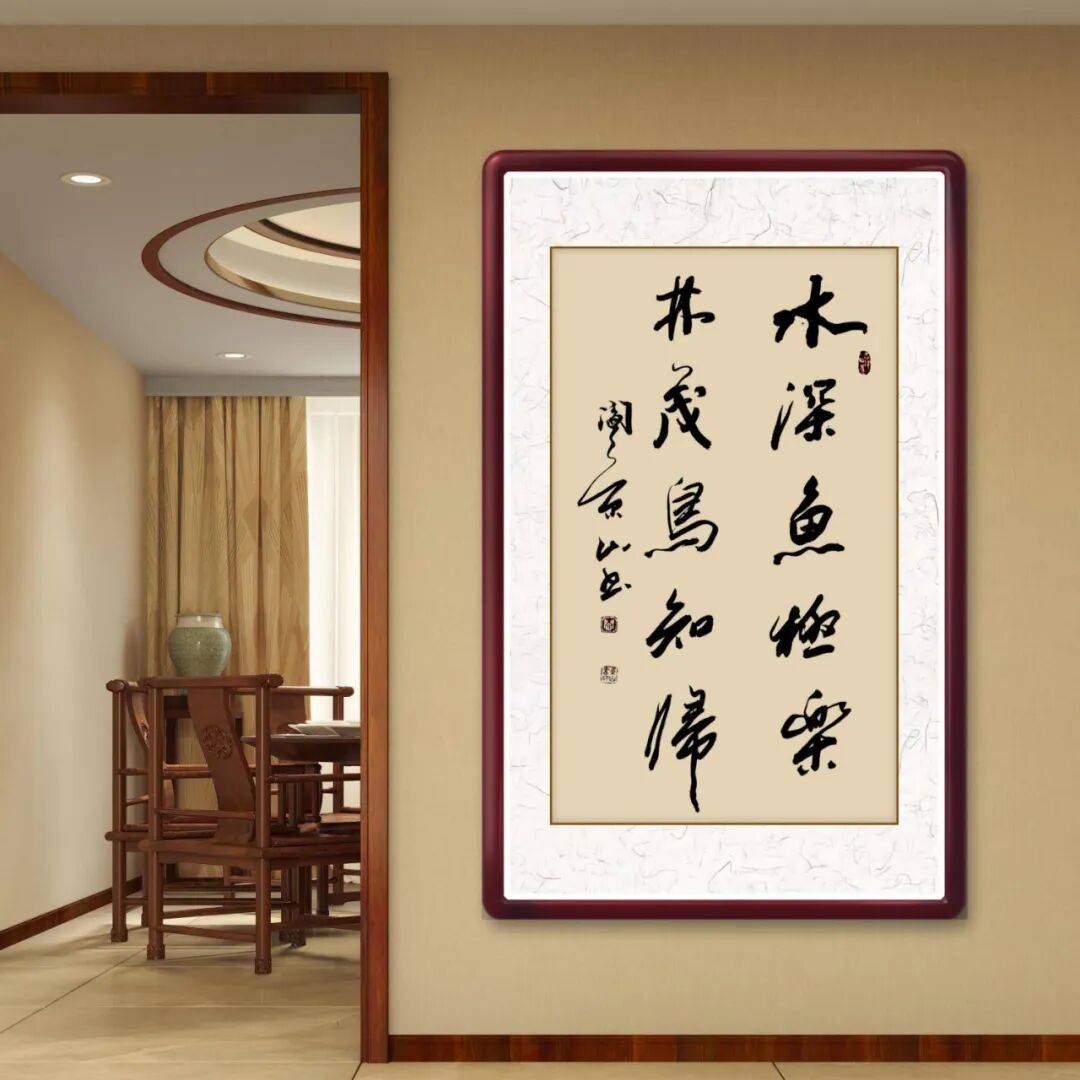 水深魚極樂
林茂鳥知歸
京山书